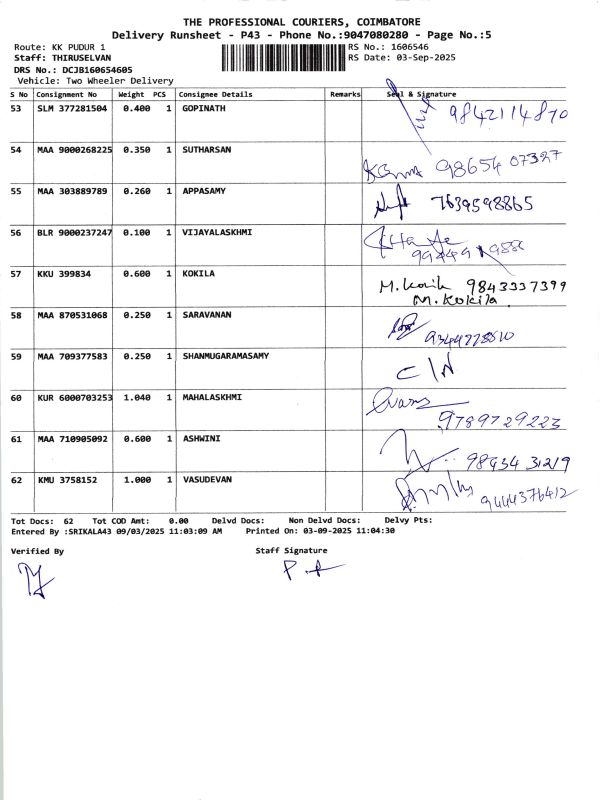 THE PROFESSIONAL COURIERS, COIMBATORE
Delivery Runsheet - P43 - Phone No.:9047080280 - Page No.:5
Route: KK PUDUR 1
RS No.: 1606546
Staff: THIRUSELVAN
RS Date: 03-Sep-2025
DRS No.: DCJB160654605
Vehicle: Two Wheeler Delivery
S No Consignment No Weight PCS Consignee Details Remarks Seal & Signature
53 SLM 377281504 0.400 1 GOPINATH 9842114870
54 MAA 9000268225 0.350 1 SUTHARSAN 98654 07327
55 MAA 303889789 0.260 1 APPASAMY 7639598865
56 BLR 9000237247 0.100 1 VIJAYALASKHMI
57 KKU 399834 0.600 1 KOKILA 9843337399
M. Kokila
58 MAA 870531068 0.250 1 SARAVANAN
59 MAA 709377583 0.250 1 SHANMUGARAMASAMY
60 KUR 6000703253 1.040 1 MAHALASKHMI
9789729223
61 MAA 710905092 0.600 1 ASHWINI 98434 31219
62 KMU 3758152 1.000 1 VASUDEVAN 9444376412
Tot Docs: 62 Tot COD Amt: 0.00 Delvd Docs: Non Delvd Docs: Delvy Pts:
Entered By :SRIKALA43 09/03/2025 11:03:09 AM Printed On: 03-09-2025 11:04:30
Verified By Staff Signature